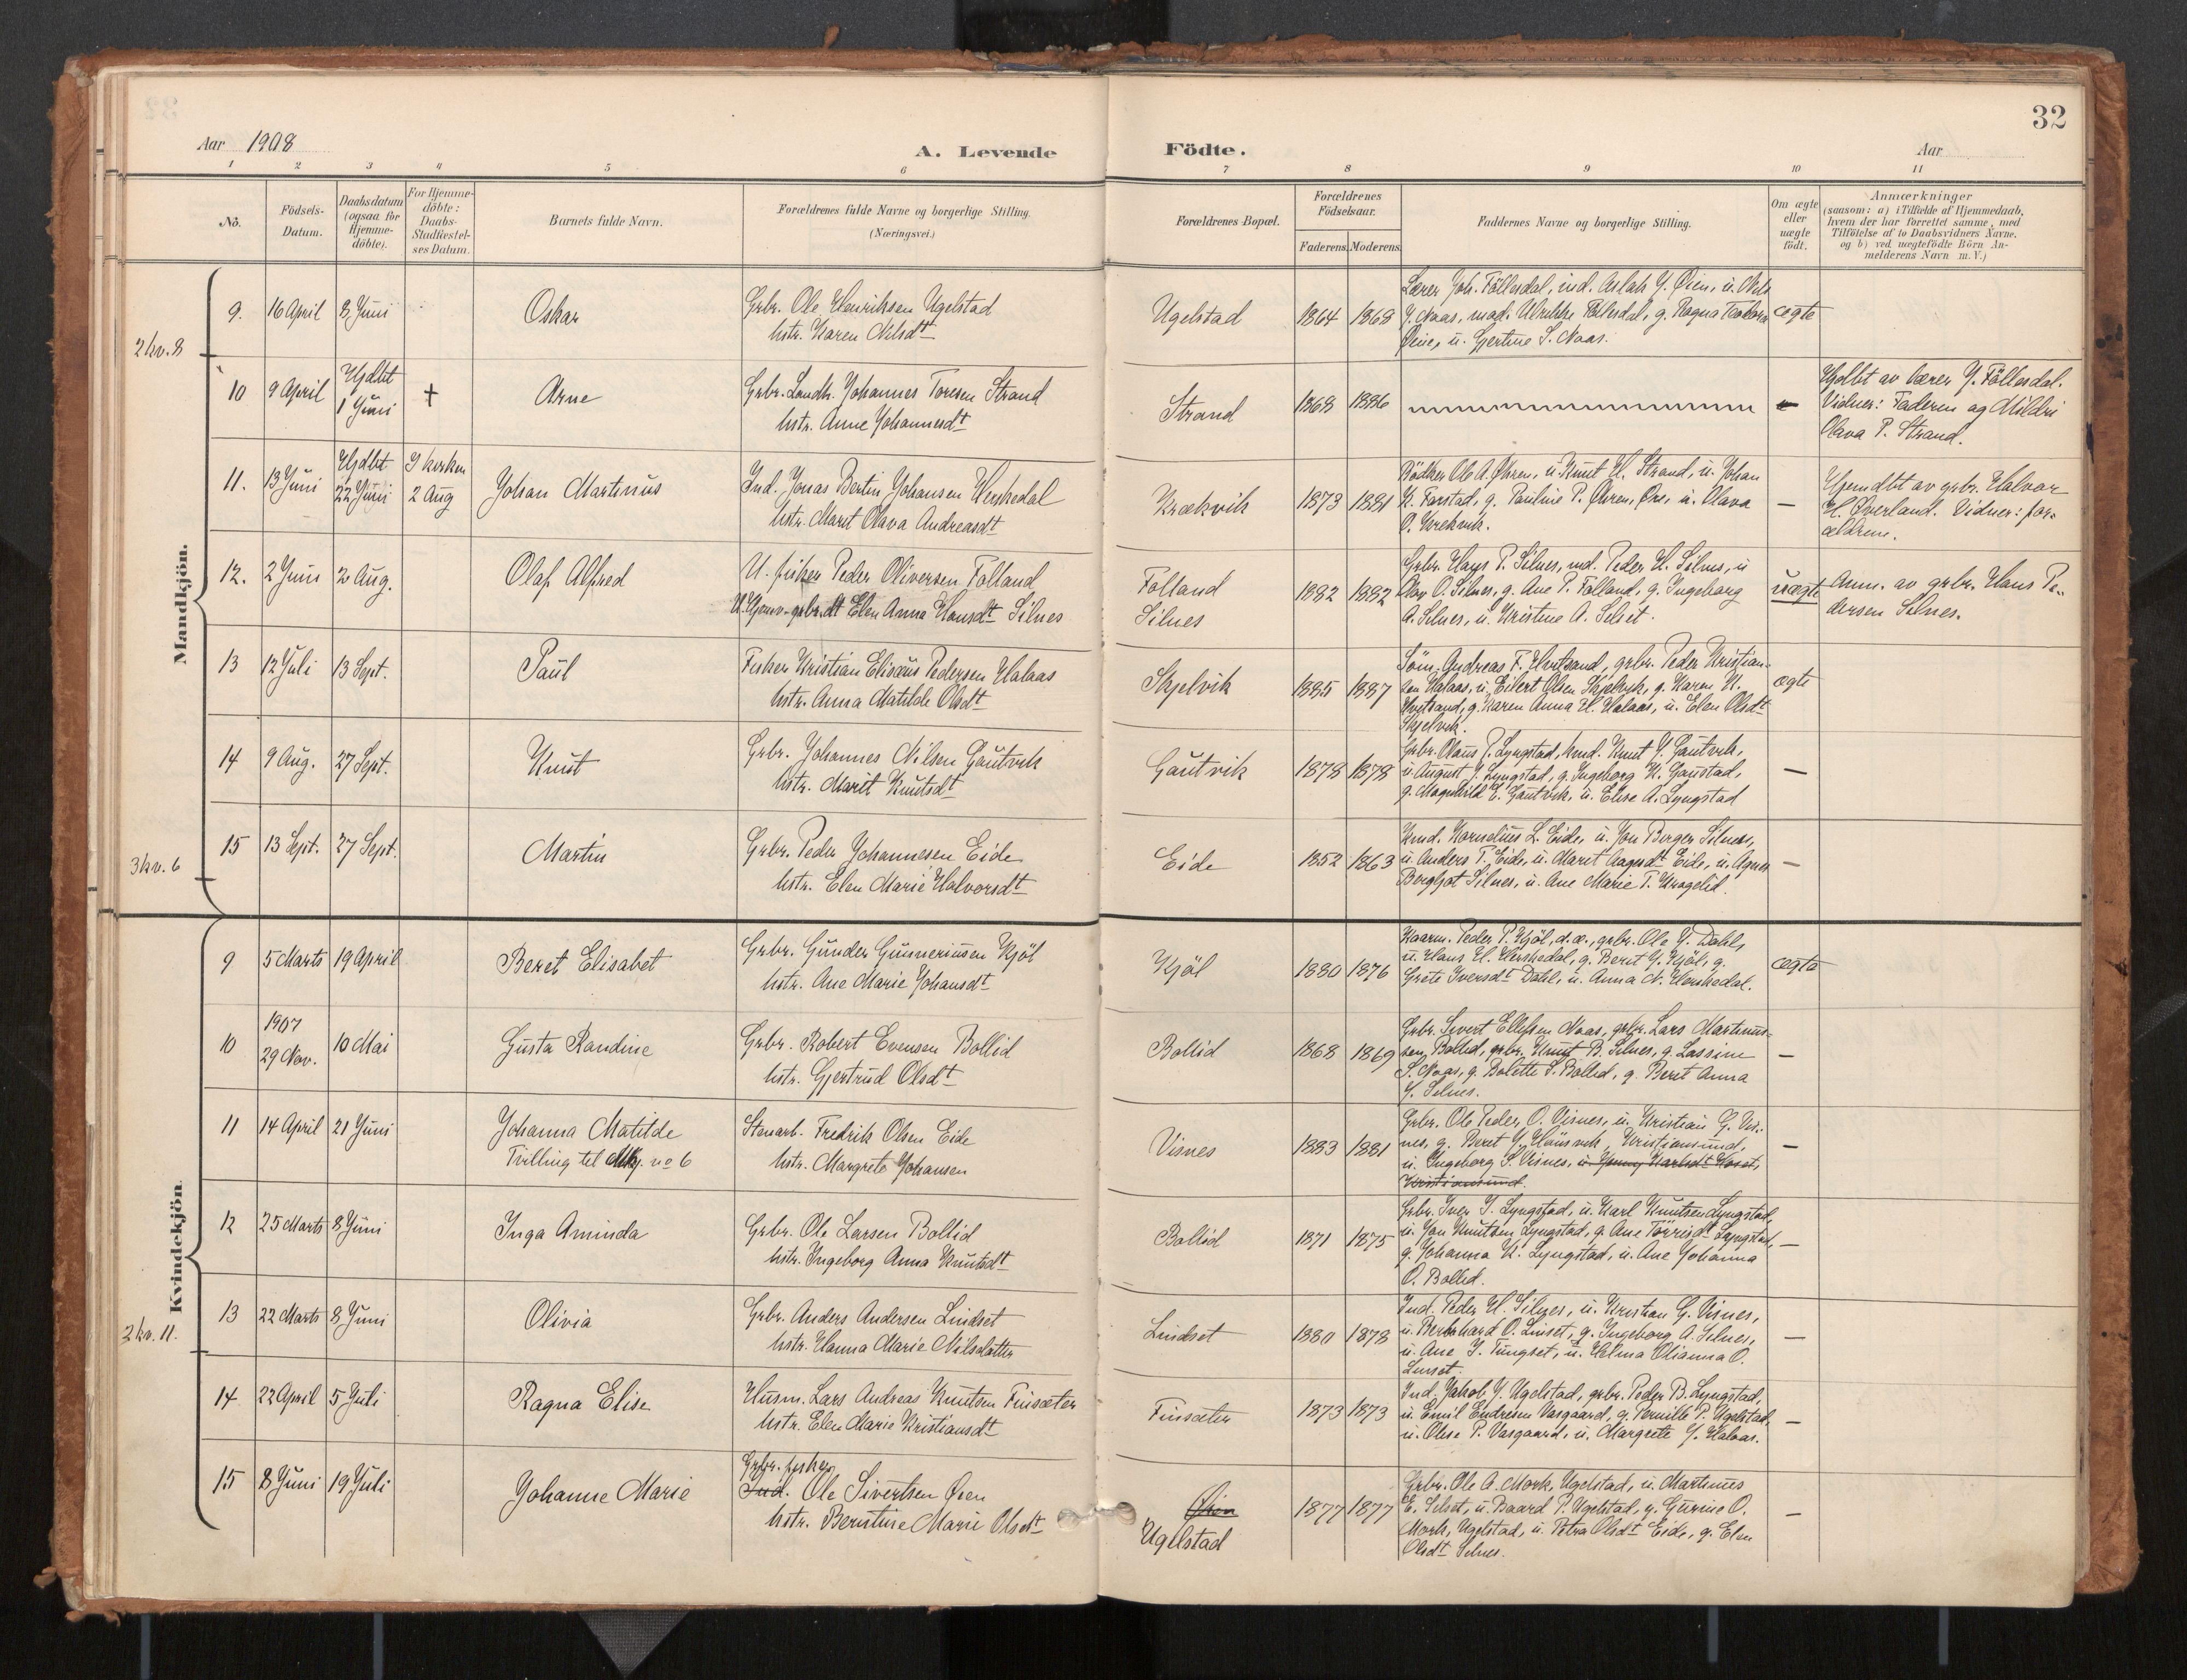 32
Aar 1908
A. Levende
Födte.
Aar
1 2 3 4 5 6 7 8 9 10 11
No.
Födsels-
Datum.
Daabsdatum
(ogsaa for
Hjemme-
döbte).
For Hjemme-
döbte:
Daabs-
Stadfæstel-
ses Datum.
Barnets fulde Navn.
Forældrenes fulde Navne og borgerlige Stilling.
(Næringsvei.)
Forældrenes Bopæl.
Forældrenes
Födselsaar.
Faderens. Moderens.
Faddernes Navne og borgerlige Stilling.
Om ægte
eller
uægte
födt.
Anmærkninger
(saasom: a) i Tilfælde af Hjemmedaab,
hvem der har forrettet samme, med
Tilföielse af to Daabsvidners Navne,
og b) ved uægtefödte Börn An-
melderens Navn m. V.)
Mandkjön.
2 kv. 8
9. 16 April 8 Juni
Oskar
Grbr. Ole Henriksen Ugelstad
hstr. Karen Nilsdt
Ugelstad
1864 1868
Lærer Joh. Föllesdal, ind. Aslak J. Öien, u. Nils
J. Naas, mad. Ulrikke Föllesdal, g. Ragna
Öien, u. Gjertine S. Naas.
ægte
10 9 April
Hjdbt
1 Juni
+
Arne
Grbr. Landh. Johannes Toresen Strand
hstr. Anne Johannesdt
Strand
1868 1886
Hjdbt av lærer J. Föllesdal.
Vidner: Faderen og Mildri
Olava P. Strand.
11. 13 Juni
Hjdbt
22 Juni
I kirken
2 Aug
Johan Martinus
Ind. Jonas Bertin Johansen Herskedal
hstr. Marit Olava Andreasdt
Krækvik
1873 1881
Bödker Ole A. Öhren, u. Knut H. Strand, u. Johan
K. Farstad, g. Pauline P. Öhren, u. Olava
O. Krekvik.
—
Hjemdbt av grbr. Halvor
H. Överland. Vidner: for-
ældrene.
12. 2 Juni 2 Aug.
Olaf Alfred
U. fisker Peder Oliversen Folland
U. grbr.dt Elen Anna Hansdt Silnes
Folland
Silnes
1882 1882
Grbr. Hans P. Silnes, ind. Peder H. Silnes, u
Olav O. Silnes, g. Ane P. Folland, g. Ingeborg
A. Silnes, u. Kristine A. Selset.
uægte
Anm. av grbr. Hans Pe-
dersen Silnes.
13 12 Juli 13 Sept.
Paul
Fisker Kristian Elisæus Pedersen Halaas
hstr. Anna Matilde Olsdt
Skjelvik
1885 1887
Söm. Andreas F. Hvitsand, grbr. Peder Kristian-
sen Halaas, u. Eilert Olsen Skjelvik, g. Karen K.
Hvitsand, g. Karen Anna H. Halaas, u. Elen Olsdt
Skjelvik.
ægte
14 9 Aug. 27 Sept.
Knut
Grbr. Johannes Nilsen Gautvik
hstr. Marit Knutsdt
Gautvik
1878 1878
Grbr. Olaus J. Lyngstad, ind. Knut J. Gautvik,
u. August J. Lyngstad, g. Ingeborg K. Gaustad,
g. Magnhild E. Gautvik, u. Elise A. Lyngstad
—
3 kv. 6
15 13 Sept. 27 Sept.
Martin
Grbr. Peder Johannesen Eide
hstr. Elen Marie Halvorsdt
Eide
1852 1863
Kornelius L. Eide, u. Jon Berger Silnes,
u. Anders T. Eide, u. Marit Aagesdt Eide, u. Agnes
Bergljot Silnes, u. Ane Marie T. Kragelid.
—
Kvindekjön.
9 5 Marts 19 April
Beret Elisabet
Grbr. Gunder Gunneriusen Kjöl
hstr. Ane Marie Johansdt
Kjöl
1880 1876
Kaarm. Peder P. Kjöl, d.æ., grbr. Ole J. Dahl,
u. Hans H. Herskedal, g. Berit J. Kjöl, g.
Grete Iversdt Dahl, u. Anna N. Herskedal.
ægte
10
1907
29 Nov. 10 Mai
Gusta Randine
Grbr. Robert Evensen Bollid
hstr. Gjertrud Olsdt
Bollid
1868 1869
Grbr. Sivert Ellefsen Naas, grbr. Lars Martinus-
sen Bollid, grbr. Knut B. Silnes, g. Lassine
S. Naas, g. Bolette S. Bollid, g. Beret Anna
J. Silnes.
—
11 14 April 21 Juni
Johanna Matilde
Tvilling til Mkj. no 6
Stenarb. Fredrik Olsen Eide
hstr. Margrete Johansen
Visnes
1883 1881
Grbr. Ole Peder O. Visnes, u. Kristian G. Vis-
nes, g. Beret J. Kristiansund,
u. Ingeborg S. Visnes, u. Jenny
Kristiansund.
—
12 25 Marts 8 Juni
Inga Aminda
Grbr. Ole Larsen Bollid
hstr. Ingeborg Anna Knutsdt
Bollid
1871 1875
Grbr. Iver I. Lyngstad, u. Karl Knutsen Lyngstad,
u. Jon Knutsen Lyngstad, g. Ane Törrisdt Lyngstad,
g. Johanna K. Lyngstad, u. Ane Johanna
O. Bollid.
—
2 kv. 11.
13 22 Marts 8 Juni
Olivia
Grbr. Anders Andersen Lindset
hstr. Hanna Marie Nilsdatter
Lindset
1880 1878
Ind. Peder H. Silnes, u. Kristian G. Visnes,
u. Bernhard O. Linset, g. Ingeborg A. Silnes,
u. Ane J. Tungset, u. Helma Olianna O.
Linset.
—
14 22 April 5 Juli
Ragna Elise
Husm. Lars Andreas Knutsen Finsæter
hstr. Elen Marie Kristiansdt
Finsæter
1873 1873
Ind. Jakob J. Ugelstad, grbr. Peder B. Lyngstad,
u. Emil Endresen Vasgaard, g. Pernille P. Ugelstad,
u. Olise P. Vasgaard, u. Margrete J. Halaas.
—
15 8 Juni 19 Juli
Johanne Marie
Grbr. fisker
Ind. Ole Sivertsen Öien
hstr. Berntine Marie Olsdt
Öien
Ugelstad
1877 1877
Grbr. Ole A. Mork, Ugelstad, u. Martinus
E. Selset, u. Baard P. Ugelstad, g. Gurine O.
Mork, Ugelstad, u. Petra Olsdt Eide, g. Elen
Olsdt Silnes.
—